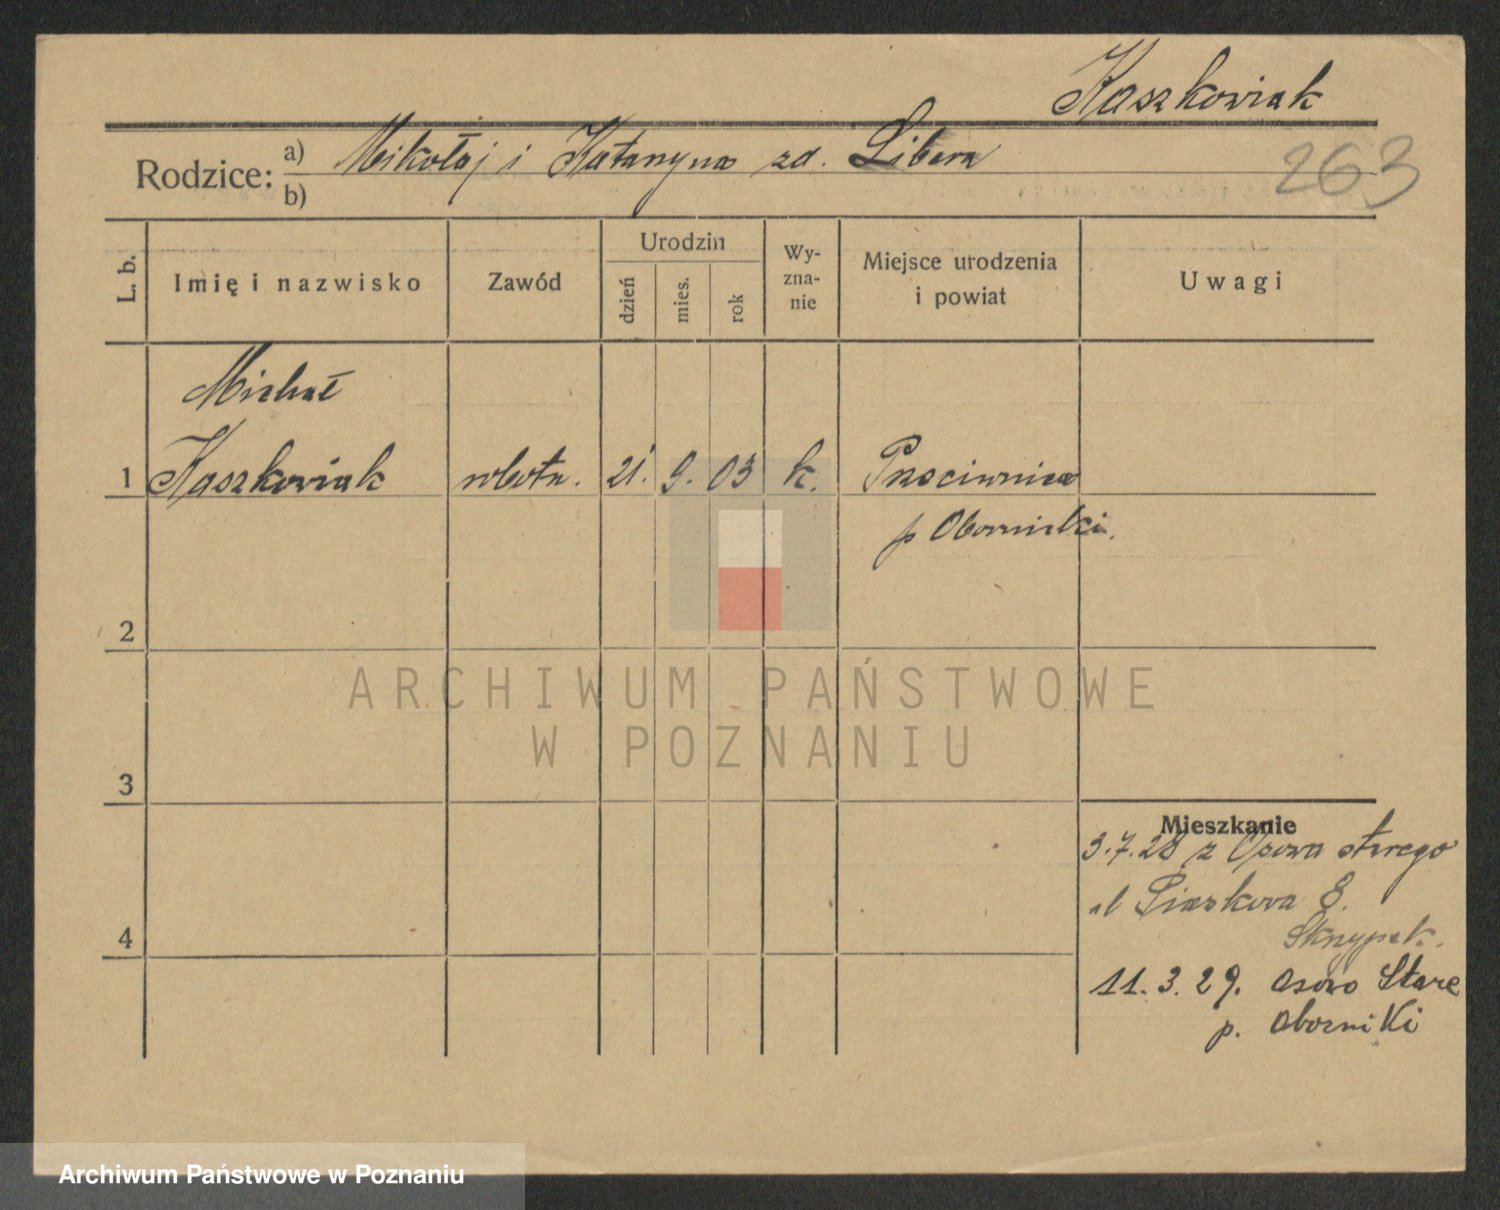 Kaszkowiak
263
Rodzice: a) Mikołaj i Katarzyna zd. Libera
b)
L. b.
Imię i nazwisko
Zawód
Urodzin
dzień
mies.
rok
Wy-
zna-
nie
Miejsce urodzenia
i powiat
Uwagi
Michał
1 Kaszkowiak robotn. 21. 9. 03 k. Przeciwnica
p Oborniki.
2
3
4
Mieszkanie
3.7.28 z Osowa starego
ul Piaskowa 8.
Skrzypek.
11. 3. 29. Osowo Stare
p. Oborniki
ARCHIWUM PAŃSTWOWE
W POZNANIU
Archiwum Państwowe w Poznaniu